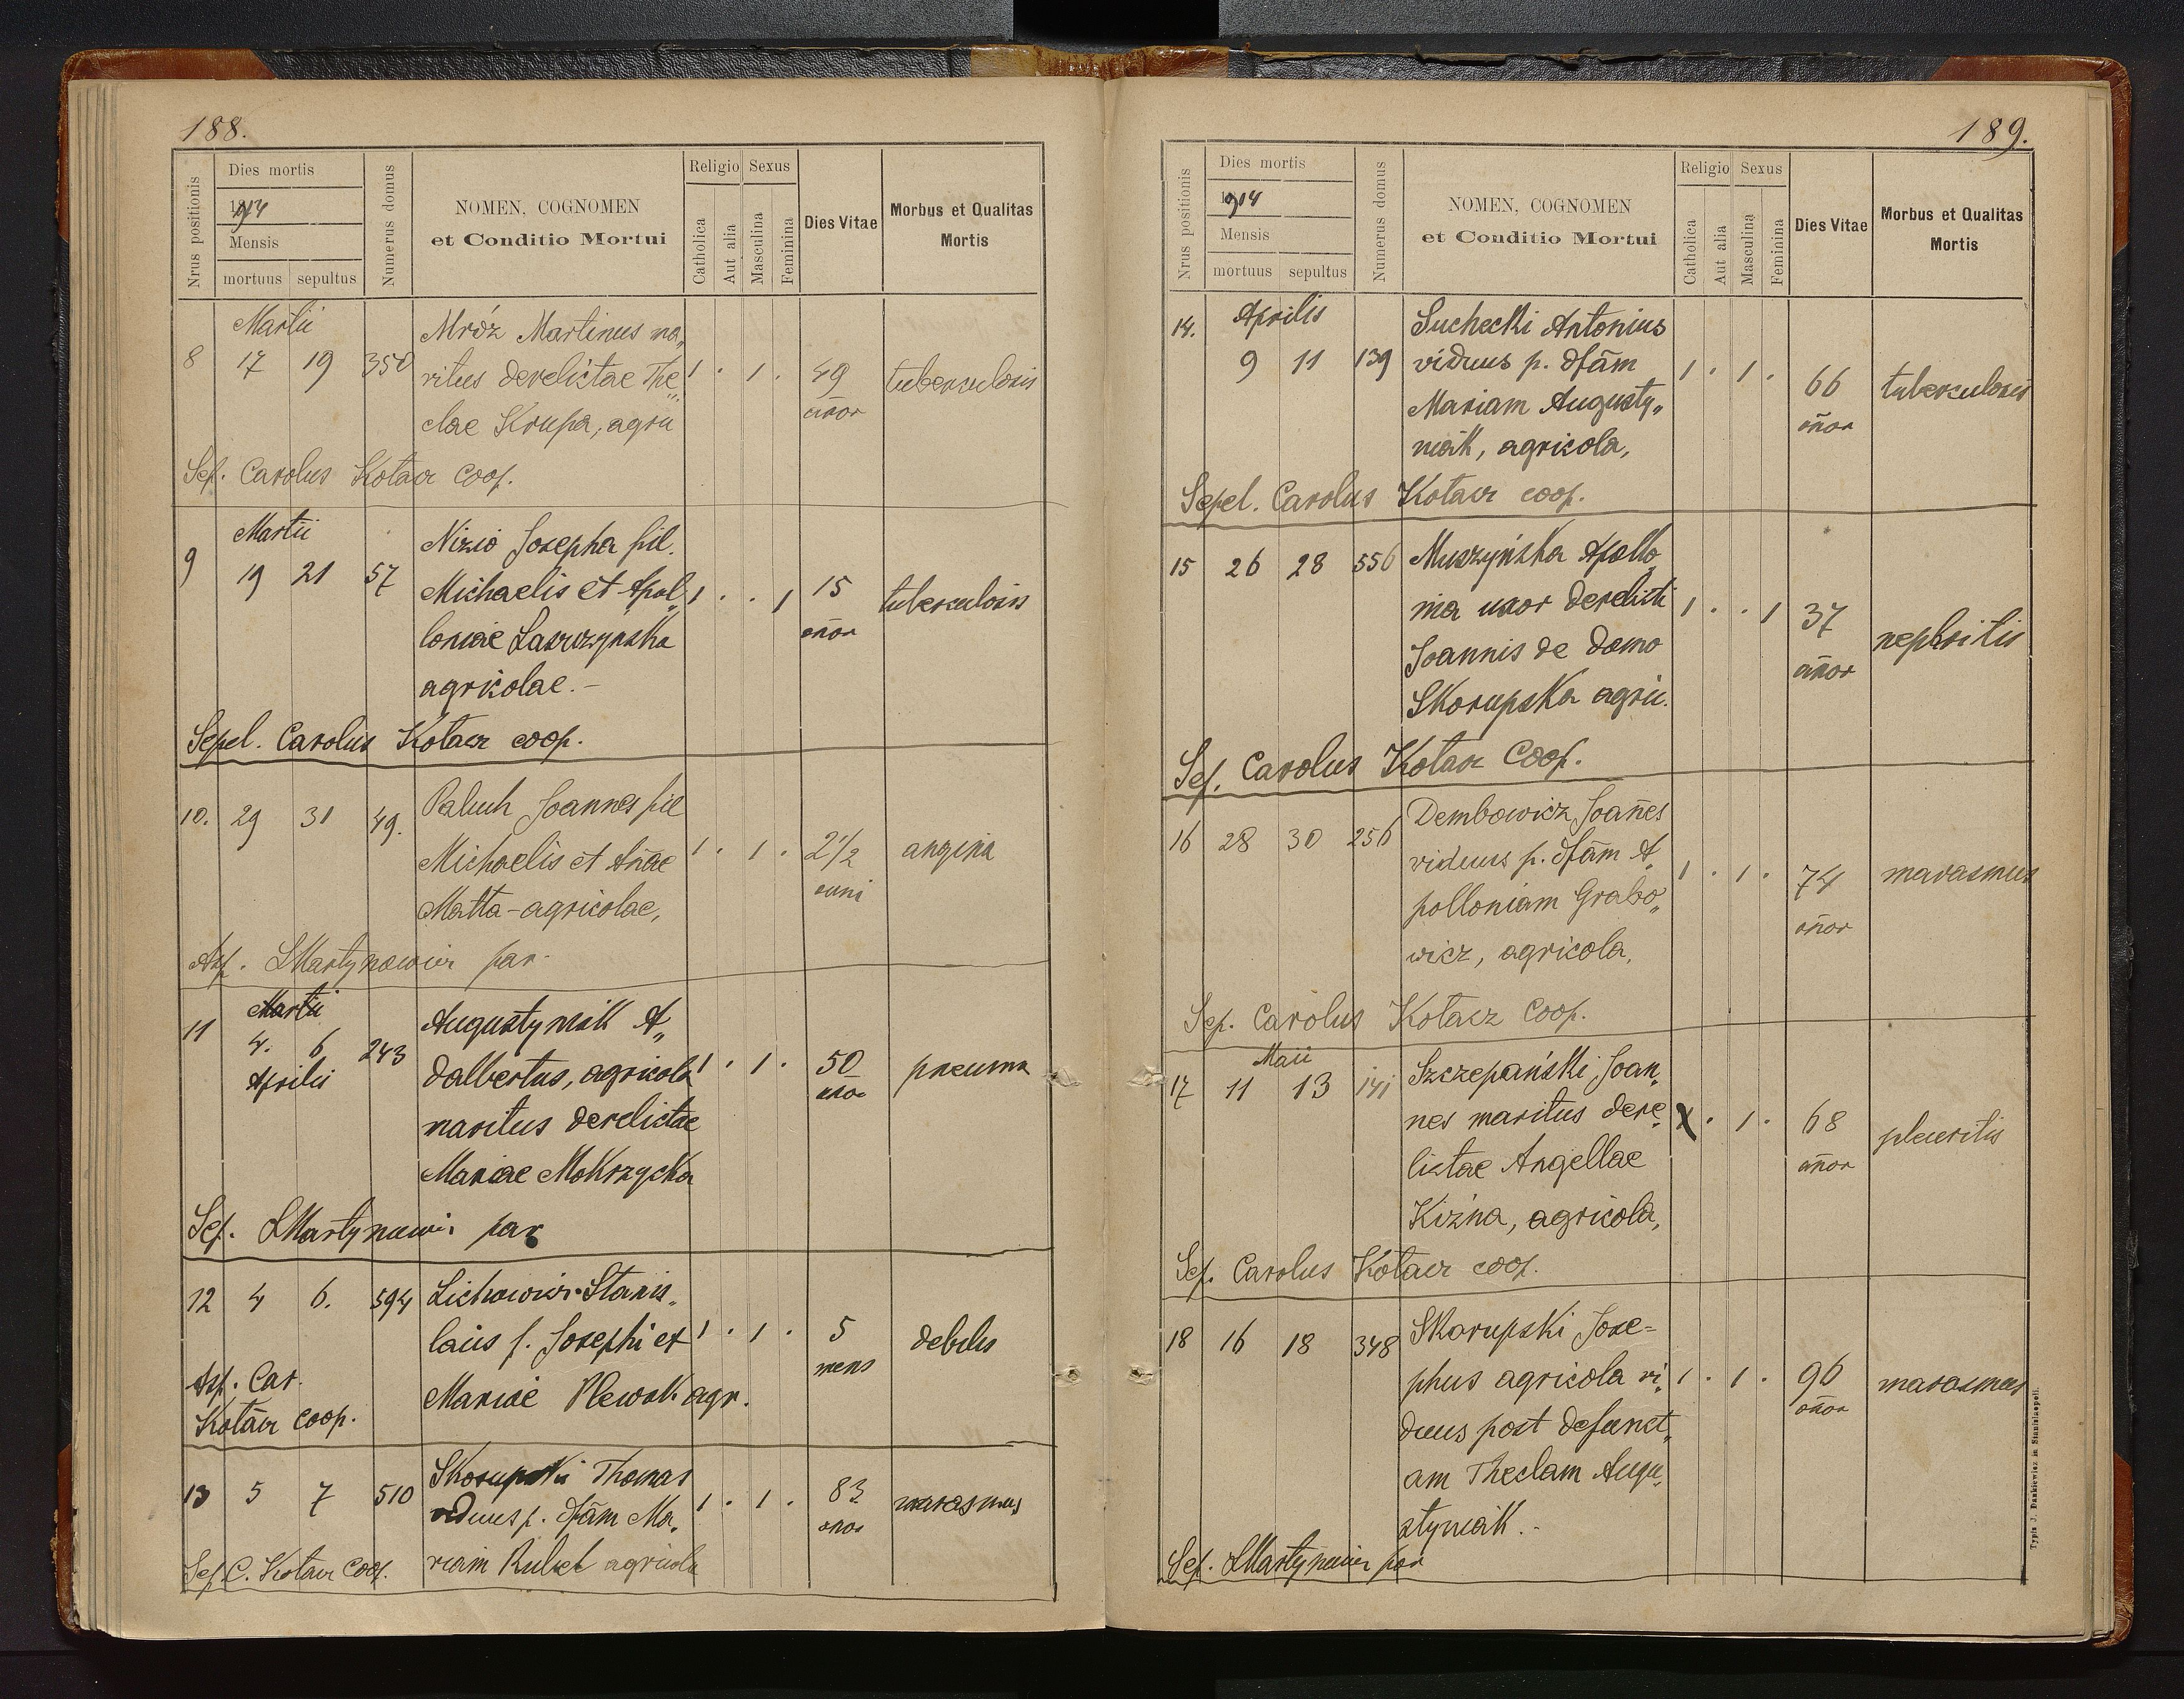 188.
Nrus positionis
Dies mortis
1914
Mensis
mortuus sepultus
Numerus domus
NOMEN, COGNOMEN
et Conditio Mortui
Religio Sexus
Catholica
Aut alia
Masculina
Feminina
Dies Vitae
Morbus et Qualitas
Mortis
Martii
8 17 19 350
Mróz Martinus ma„
ritus derelictae The„
clae Krupa, agri
1 . 1 . 49
añor
tuberculosis
Sep. Carolus Kotacz coop.
Martii
9 19 21 57
Nizio Josepha fil.
Michaelis et Apol„
loniae
agricolae.-
1 . . 1 15
añor
tuberculosis
Sepel. Carolus Kotacz coop.
10. 29 31 49.
Paluch Joannes fil
Michaelis et Añae
Matta - agricolae,
1 . 1 . 2 1/2
anni
angina
Asp. LMartynowicz par.
Martii
11 4. 6 243
Aprilis
Augustyniak A„
dalbertus, agricola
maritus derelictae
Mariae Mokrzycka
1 . 1 . 50
añor
pneuma
Sep. LMartynowicz par
12 4 6. 594
Lichowicz Stanis„
laus f. Josephi et
Mariae Plewak agr.
1 . 1 . 5
mens
debilis
Asp. Car.
Kotacz coop.
13 5 7 510
Skorupski Thomas
viduus p. dfãm Ma„
riam agricola
1 . 1 . 83
añor
marasmus
Sep. C. Kotacz coop.
189.
Nrus positionis
Dies mortis
1914
Mensis
mortuus sepultus
Numerus domus
NOMEN, COGNOMEN
et Conditio Mortui
Religio Sexus
Catholica
Aut alia
Masculina
Feminina
Dies Vitae
Morbus et Qualitas
Mortis
14. Aprilis
9 11 139
Suchecki Antonius
viduus p. dfãm
Mariam Augusty„
niak, agricola,
1 . 1 . 66
añor
tuberculosis
Sepel. Carolus Kotacz coop.
15 26 28 556
Muszyńska Apollo
nia uxor derelicti
Joannis de domo
Skorupska agric.
1 . . 1 37
añor
nephritis
Sep. Carolus Kotacz Coop.
16 28 30 256
Dembowicz Joañes
viduus p. dfãm A„
polloniam Grabo„
wicz, agricola,
1 . 1 . 74
añor
marasmus
Sep. Carolus Kotacz Coop.
Maii
17 11 13 141
Szczepański Joan„
nes maritus dere„
lictae Angellae
Kiźna, agricola,
X . 1 . 68
añor
pleuritis
Sep. Carolus Kotacz coop.
18 16 18 348
Skorupski Jose=
phus agricola vi„
duus post defunct„
am Theclam Augu„
styniak.-
1 . 1 . 96
añor
marasmus
Sep. LMartynowicz par
Typis J. Dankiewicz in Stanislaopoli.